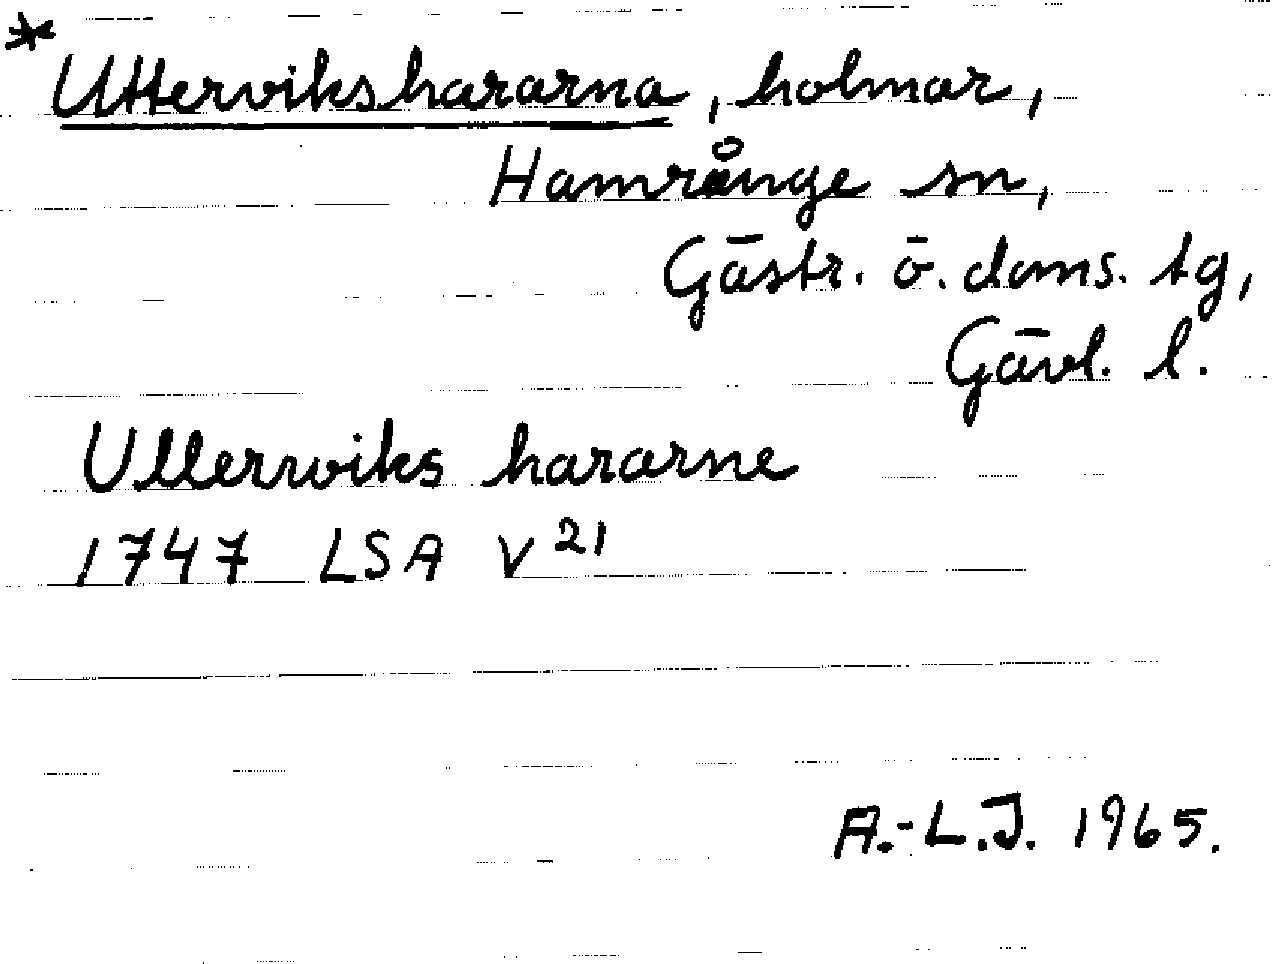 * Uttervikshararna, holmar,
Hamrånge sn,
Gästr. ö. doms. tg,
Gävl. l.
Ullerwiks hararne
1747 LSA V 21
A.-L.J. 1965.